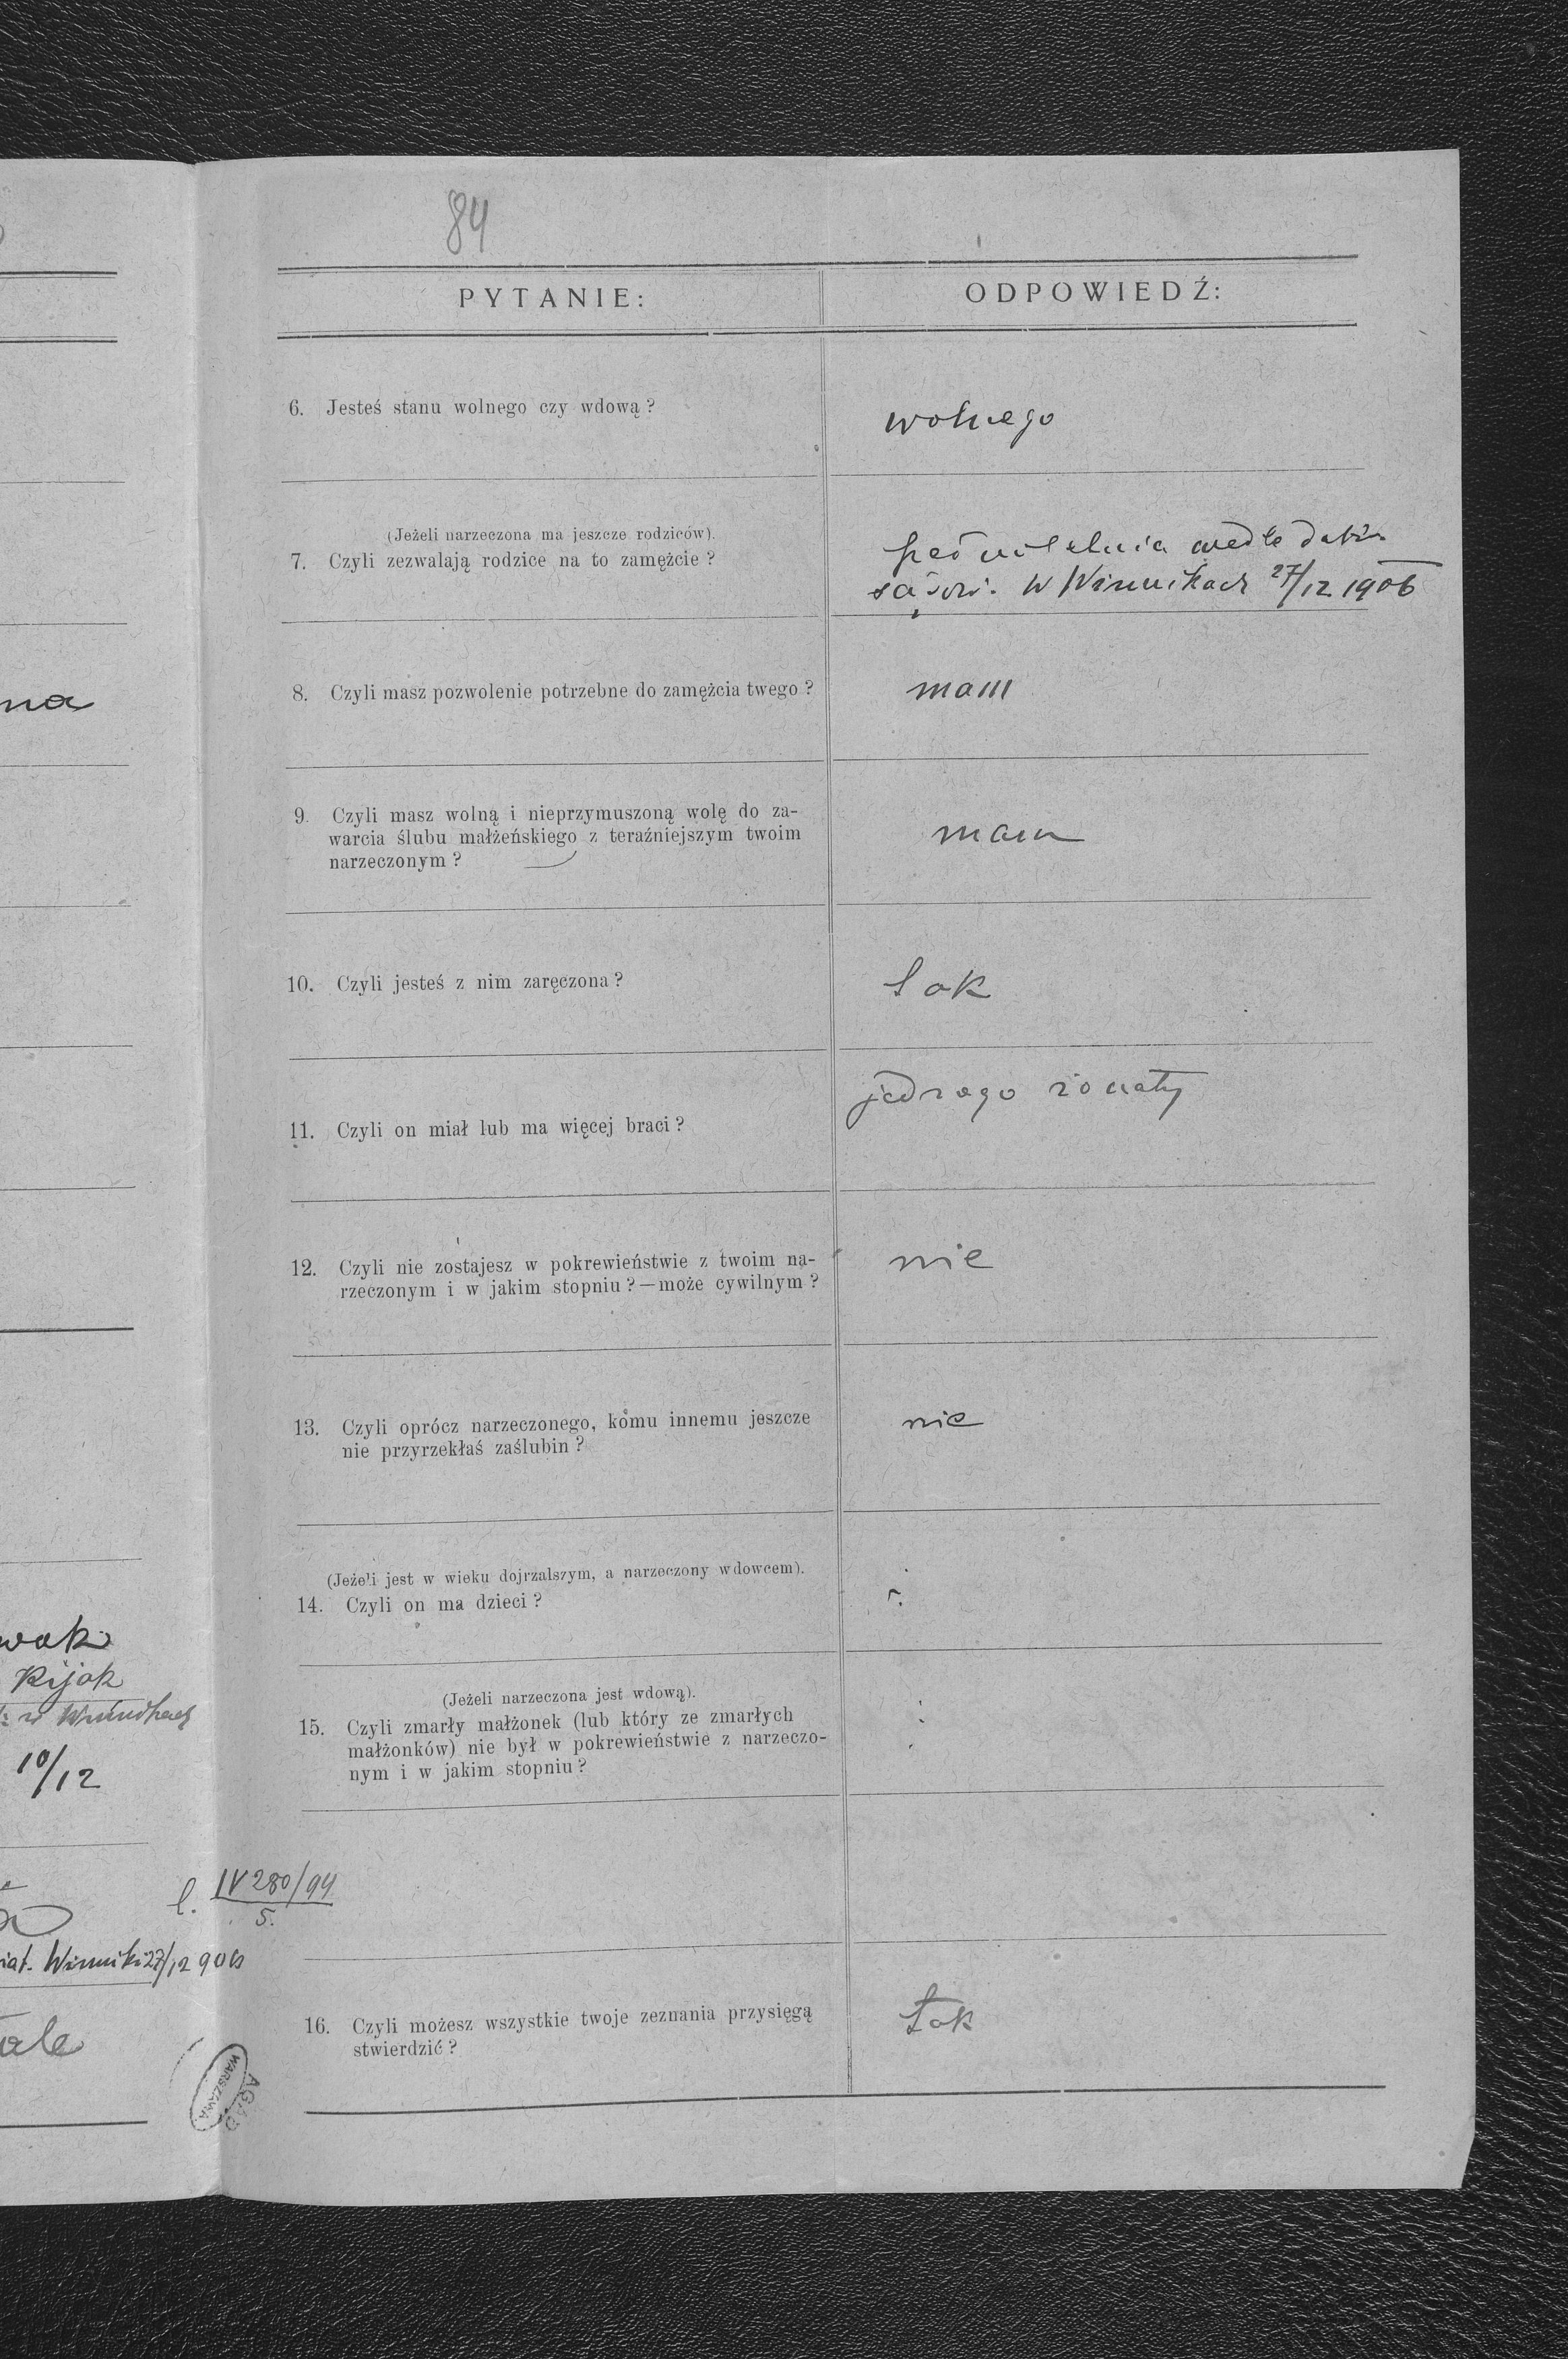 84
PYTANIE:
ODPOWIEDŹ:
6. Jesteś stanu wolnego czy wdową?
wolnego
(Jeżeli narzeczona ma jeszcze rodziców).
7. Czyli zezwalają rodzice na to zamężcie?
wedle
w Winnikach 27/12 1906
8. Czyli masz pozwolenie potrzebne do zamężcia twego?
mam
9. Czyli masz wolną i nieprzymuszoną wolę do za-
warcia ślubu małżeńskiego z teraźniejszym twoim
narzeczonym?
mam
10. Czyli jesteś z nim zaręczona?
tak
11. Czyli on miał lub ma więcej braci?
jednego żonaty
12. Czyli nie zostajesz w pokrewieństwie z twoim na-
rzeczonym i w jakim stopniu?—może cywilnym?
nie
13. Czyli oprócz narzeczonego, komu innemu jeszcze
nie przyrzekłaś zaślubin?
nie
(Jeżeli jest w wieku dojrzalszym, a narzeczony wdowcem).
14. Czyli on ma dzieci?
(Jeżeli narzeczona jest wdową).
15. Czyli zmarły małżonek (lub który ze zmarłych
małżonków) nie był w pokrewieństwie z narzeczo-
nym i w jakim stopniu?
16. Czyli możesz wszystkie twoje zeznania przysięgą
stwierdzić?
tak
na
wak
Kijak
10/12
l. IV 280/94
5.
iat. Winniki 27/12 906
ale
AGAD
WARSZAWA